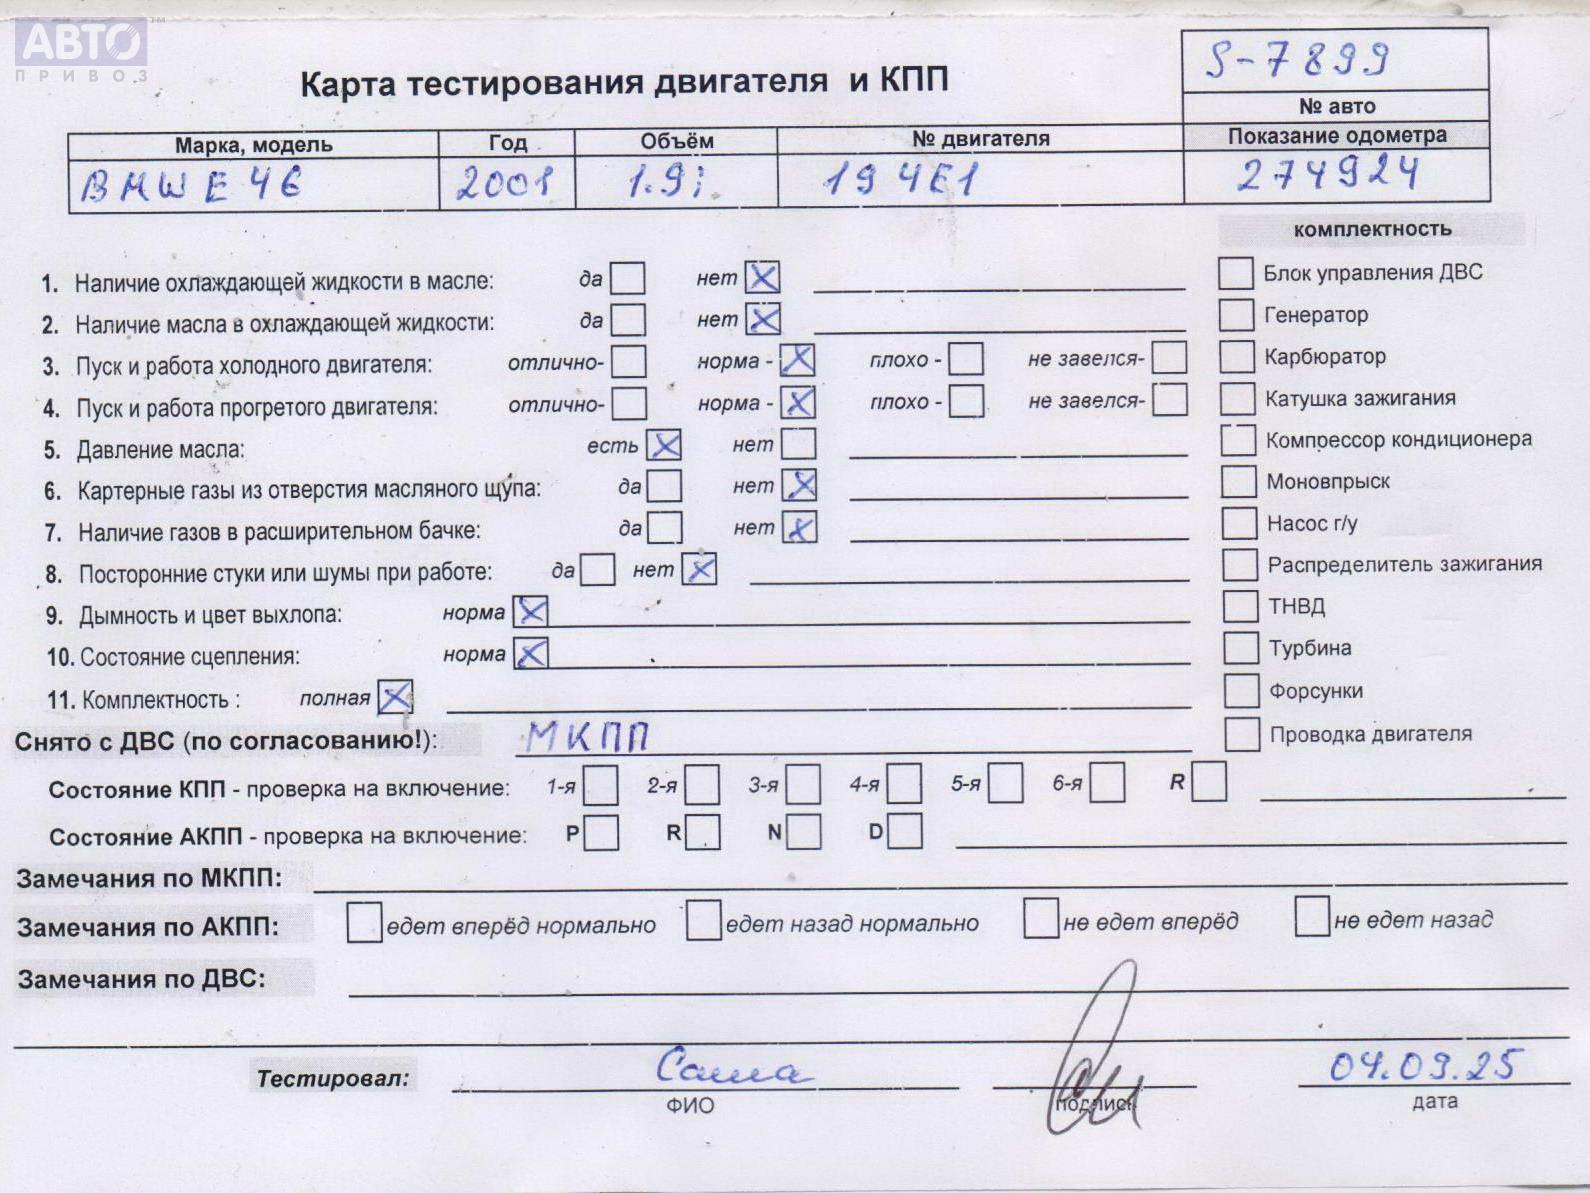 АВТО™
ПРИВОЗ
Карта тестирования двигателя и КПП
S-7899
№ авто
Марка, модель Год Объём № двигателя Показание одометра
BMW E 46 2001 1.9i 194E1 274924
комплектность
1. Наличие охлаждающей жидкости в масле: да нет X
2. Наличие масла в охлаждающей жидкости: да нет X
3. Пуск и работа холодного двигателя: отлично- норма - X плохо - не завелся-
4. Пуск и работа прогретого двигателя: отлично- норма - X плохо - не завелся-
5. Давление масла: есть X нет
6. Картерные газы из отверстия масляного щупа: да нет X
7. Наличие газов в расширительном бачке: да нет X
8. Посторонние стуки или шумы при работе: да нет X
9. Дымность и цвет выхлопа: норма X
10. Состояние сцепления: норма X
11. Комплектность : полная X
Блок управления ДВС
Генератор
Карбюратор
Катушка зажигания
Компрессор кондиционера
Моновпрыск
Насос г/у
Распределитель зажигания
ТНВД
Турбина
Форсунки
Проводка двигателя
Снято с ДВС (по согласованию!): МКПП
Состояние КПП - проверка на включение: 1-я 2-я 3-я 4-я 5-я 6-я R
Состояние АКПП - проверка на включение: P R N D
Замечания по МКПП:
Замечания по АКПП: едет вперёд нормально едет назад нормально не едет вперёд не едет назад
Замечания по ДВС:
Тестировал: Саша 04.09.25
ФИО подпись дата